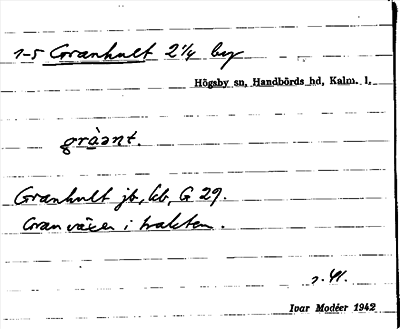 1-5 Granhult 2 1/4 by
Högsby sn, Handbörds hd, Kalm. l.
gràant.
Granhult jb, kb, G 29.
Gran växer i trakten.
s. 41.
Ivar Modéer 1942